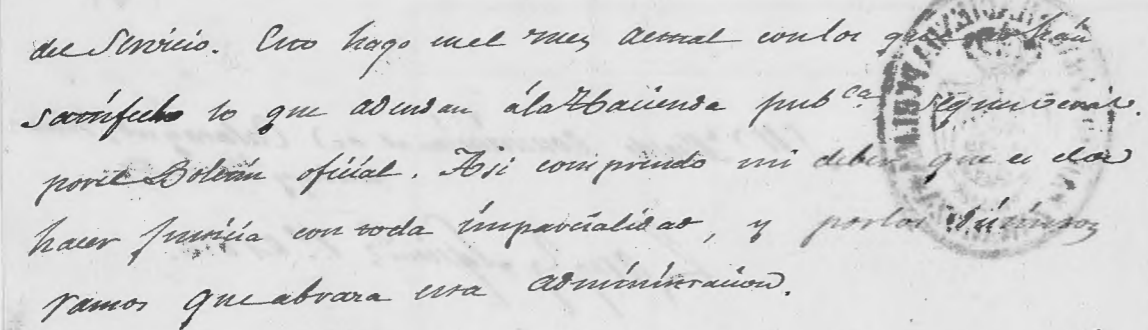 del Servicio. Esto hago en el mes actual con los que no han
satisfecho lo que adeudan á la Hacienda pub.ca segun verá
por el Boletin oficial. Asi comprendo mi deber que es el de
hacer justicia con toda imparcialidad, y por los distintos
ramos que abraza esta administracion.